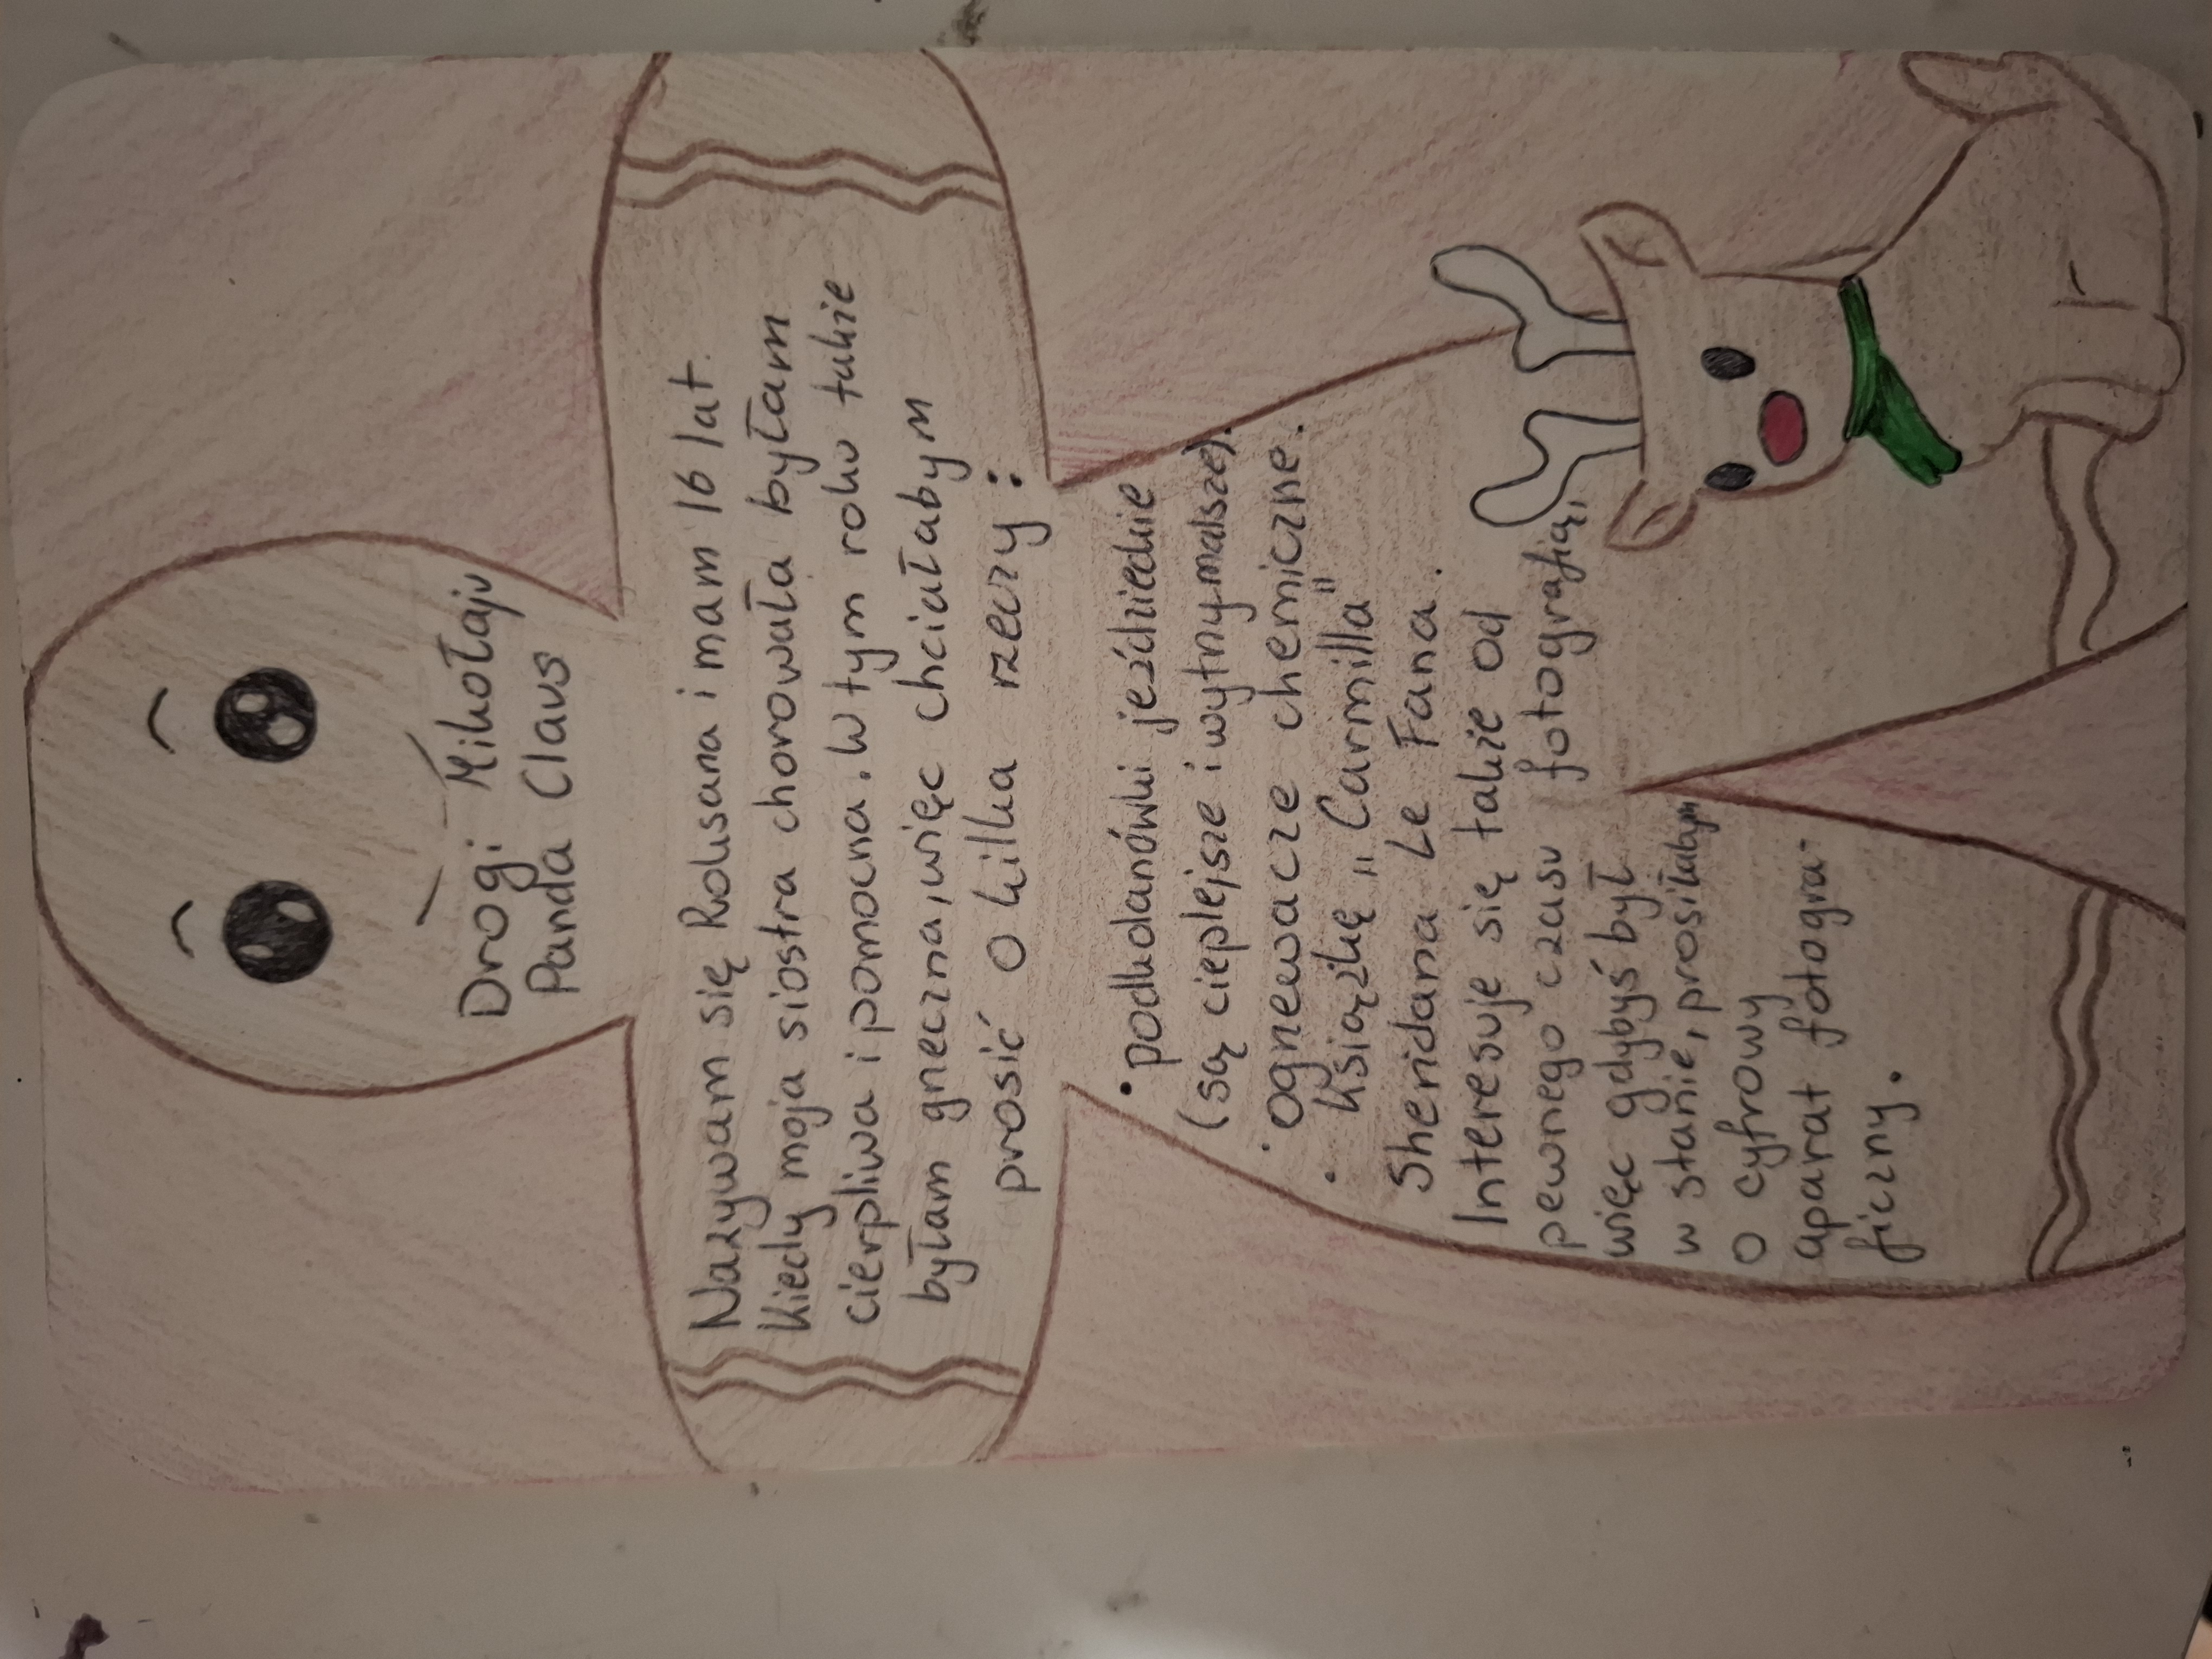 Drogi Mikołaju
Panda Claus
Nazywam się Roksana i mam 16 lat.
Kiedy moja siostra chorowała byłam
cierpliwa i pomocna. W tym roku także
byłam grzeczna, więc chciałabym
prosić o kilka rzeczy:
• podkolanówki jeździeckie
(są cieplejsze i wytrzymalsze).
• ogrzewacze chemiczne.
• Książkę „Carmilla"
Sheridana Le Fana.
Interesuje się także od
pewnego czasu fotografią,
więc gdybyś był
w stanie, prosiłabym
o cyfrowy
aparat fotogra-
ficzny.